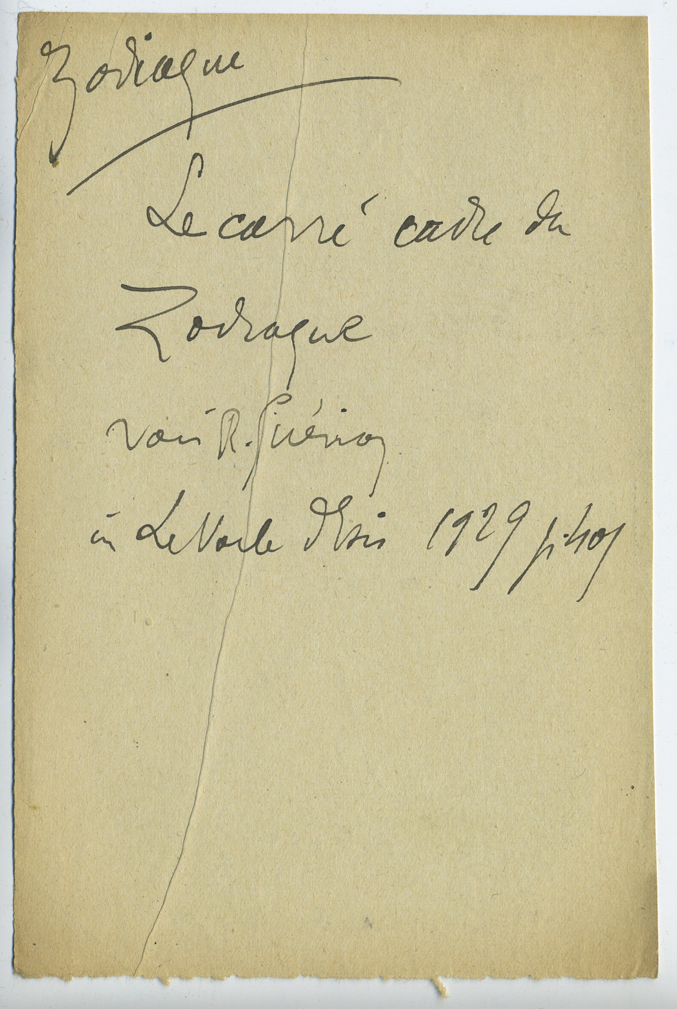 Zodiaque
Le carré cadre du
Zodiaque
voir R. Guénon
in Le Voile d'Isis 1929 p. 401